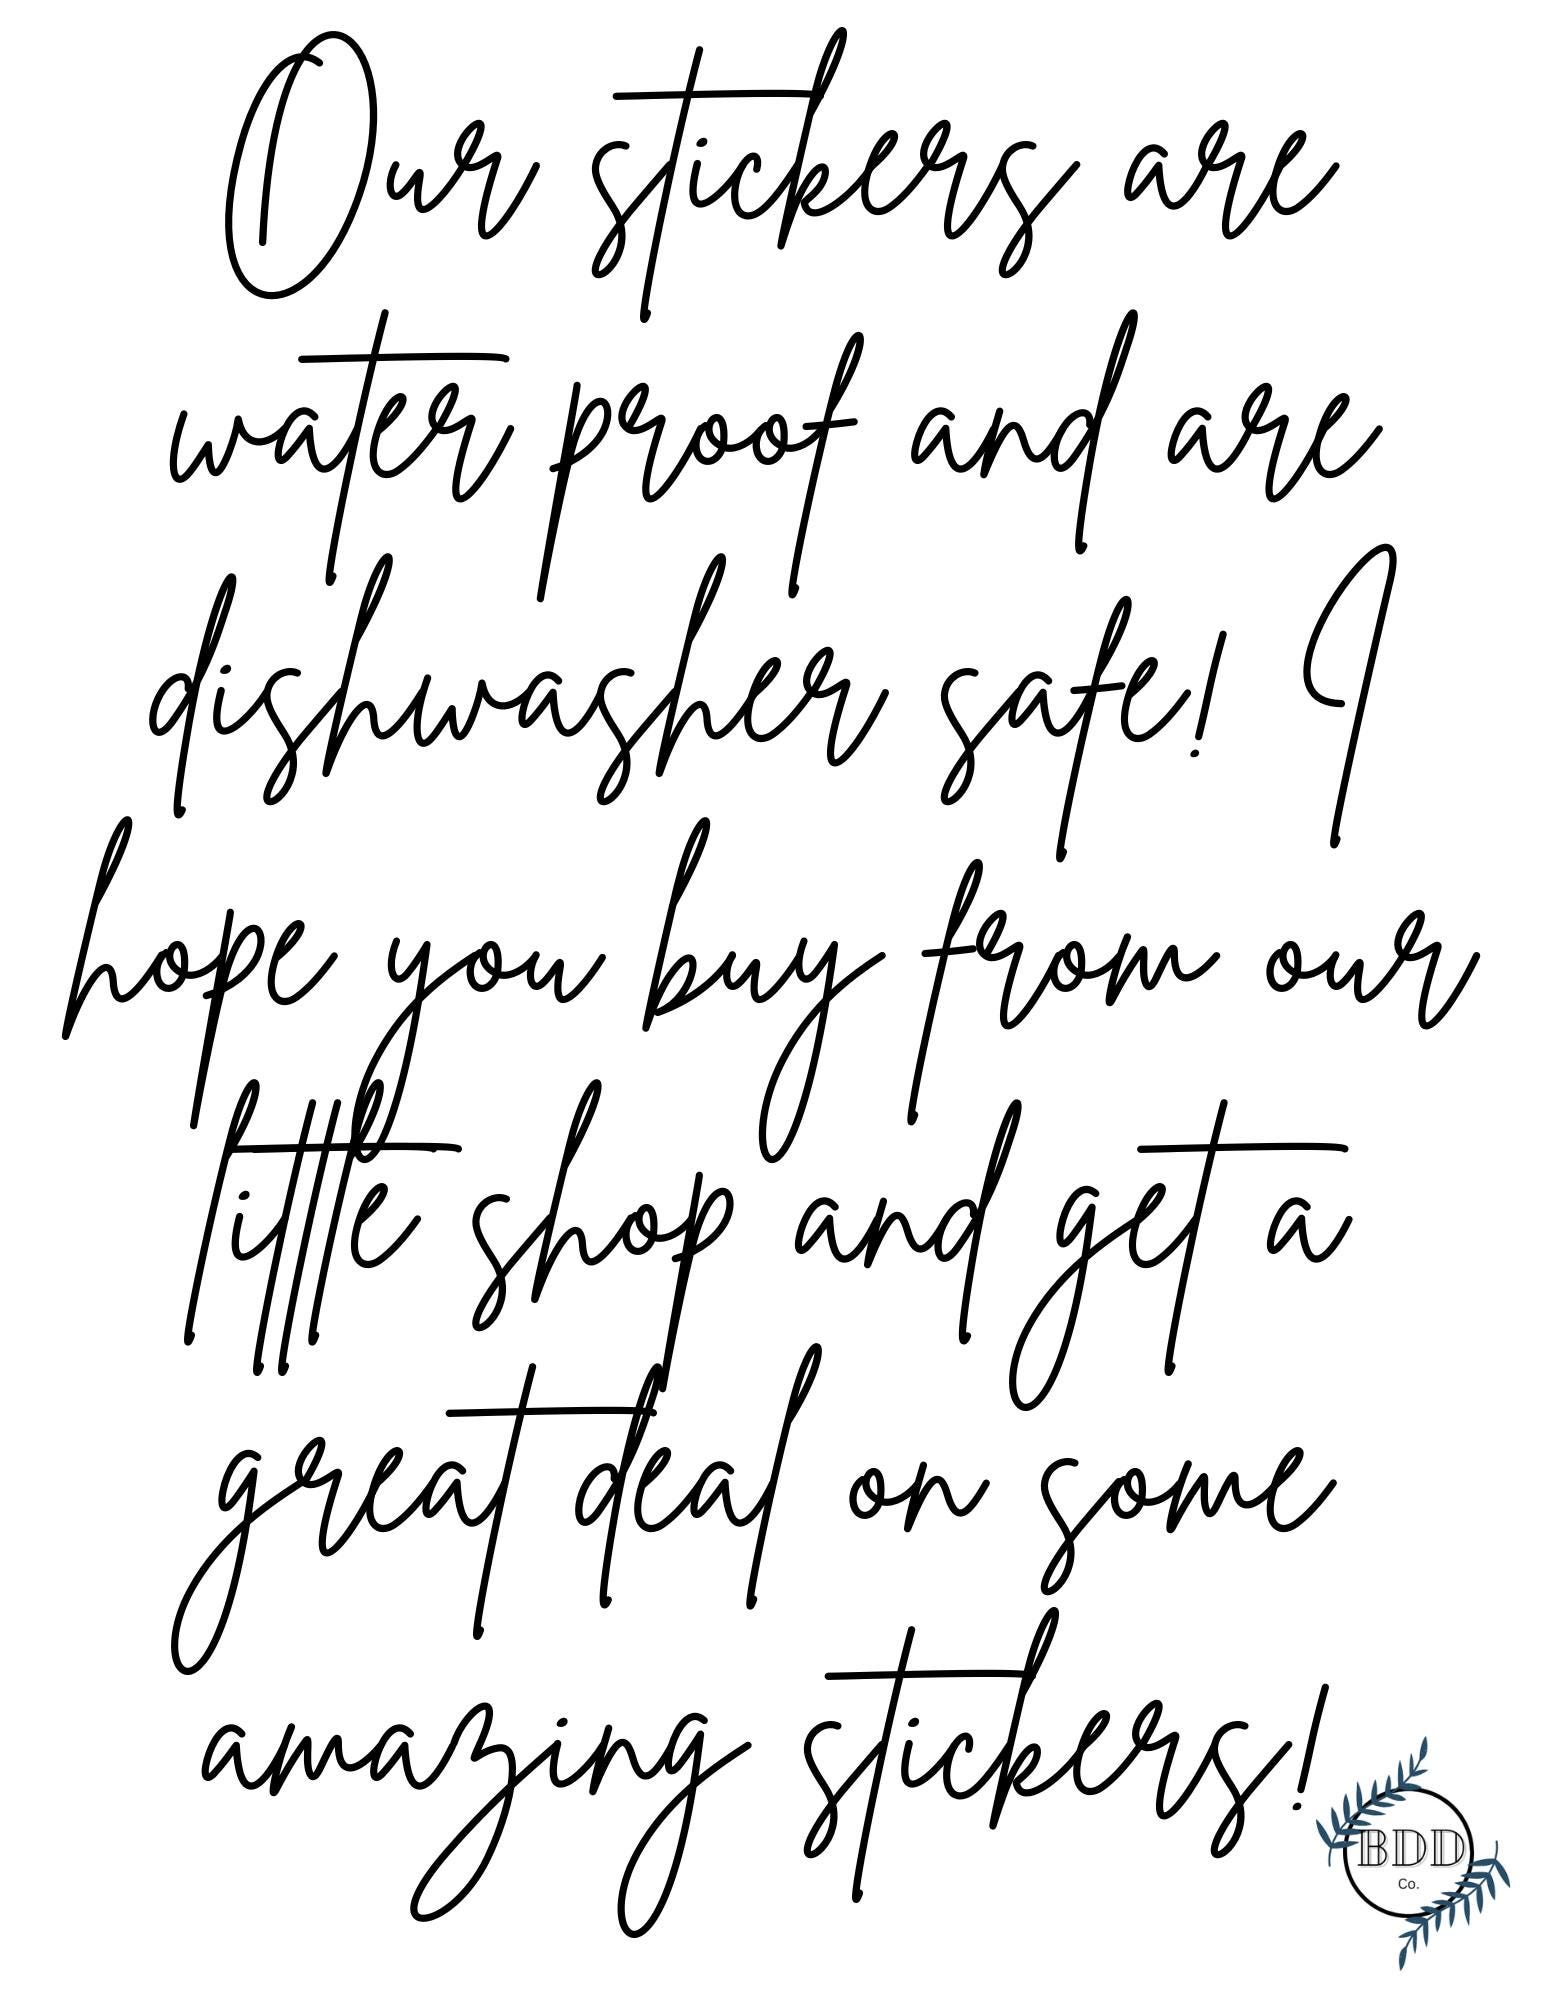 Our stickers are
water proof and are
dishwasher safe! I
hope you buy from our
little shop and get a
great deal on some
amazing stickers!
BDD
Co.